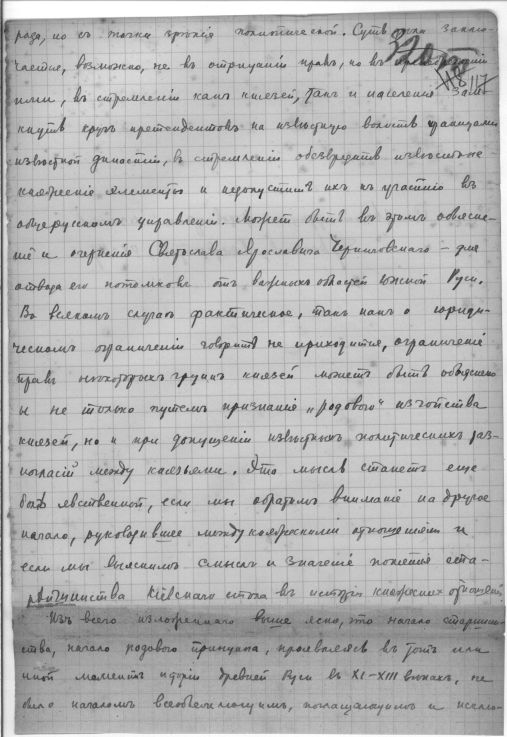 рода, но съ точки зрѣнія политической. Суть заклю-
чается, возможно, не въ отрицаніи правъ, но въ
или, въ стремленіи какъ князей, такъ и населенія замк-
нуть кругъ претендентовъ на извѣстную волость границами
извѣстной династіи, въ стремленіи обезвредить извѣстные
княжескіе элементы и недопустить ихъ къ участію въ
общерусскомъ управленіи. Можетъ быть въ этомъ объясне-
ніе и Святослава Ярославича Черниговскаго – для
отвода его потомковъ отъ важныхъ областей южной Руси.
Во всякомъ случаѣ фактическое, такъ какъ о юриди-
ческомъ ограниченіи говорить не приходится, ограниченіе
правъ нѣкоторыхъ группъ князей можетъ быть объяснено
не только путемъ признанія „родового" изгойства
князей, но и при допущеніи извѣстныхъ политическихъ раз-
ногласій между князьями. Эта мысль станетъ еще
явственной, если мы обратимъ вниманіе на другое
начало, руководившее междукняжескими отношеніями и
если мы выяснимъ смыслъ и значеніе понятія ста-
рѣйшинства Кіевскаго стола въ исторіи княжескихъ отношеній.
Изъ всего изложеннаго выше ясно, что начало старшин-
ства, начало родового принципа, проявляясь въ тотъ или
иной моментъ исторіи древней Руси въ XI–XIII вѣкахъ, не
было началомъ всеобъемлющимъ, поглащающимъ и исклю-